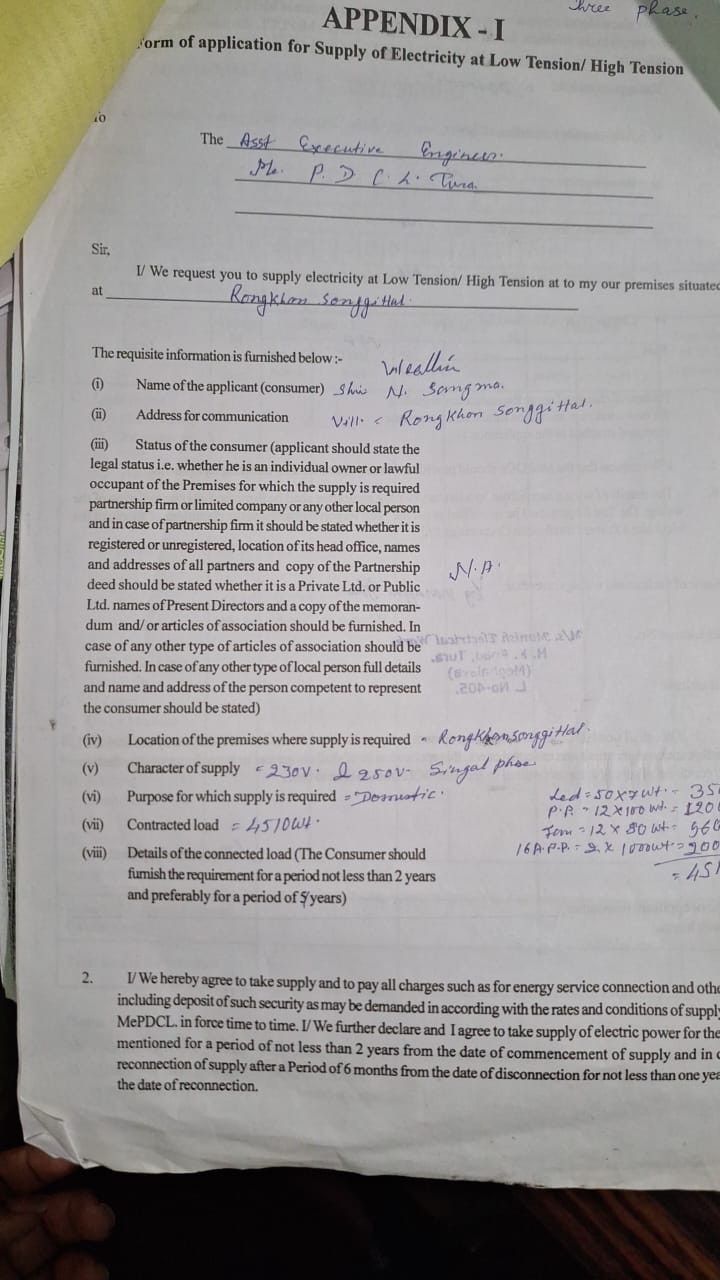 Three phase.
APPENDIX - I
orm of application for Supply of Electricity at Low Tension/ High Tension
To
The Asst Executive Engineer.
Me. P. D C. L. Tura.
Sir,
I/ We request you to supply electricity at Low Tension/ High Tension at to my our premises situated
at Rongkhon Songgittal.
The requisite information is furnished below :-
(i) Name of the applicant (consumer) Shri N. Sangma.
(ii) Address for communication Vill. Rongkhon Songgittal.
(iii) Status of the consumer (applicant should state the
legal status i.e. whether he is an individual owner or lawful
occupant of the Premises for which the supply is required
partnership firm or limited company or any other local person
and in case of partnership firm it should be stated whether it is
registered or unregistered, location of its head office, names
and addresses of all partners and copy of the Partnership
deed should be stated whether it is a Private Ltd. or Public N.A.
Ltd. names of Present Directors and a copy of the memoran-
dum and/ or articles of association should be furnished. In
case of any other type of articles of association should be
furnished. In case of any other type of local person full details
and name and address of the person competent to represent
the consumer should be stated)
(iv) Location of the premises where supply is required - Rongkhon songgittal.
(v) Character of supply = 230V. 250V- Singal phse
(vi) Purpose for which supply is required = Domestic.
(vii) Contracted load = 4510wt.
(viii) Details of the connected load (The Consumer should
furnish the requirement for a period not less than 2 years
and preferably for a period of 5 years)
Led = 50x7 wt. = 35
P.P. = 12x100 wt. = 120
12 x 80 wt = 960
16 A.P.P. = 2 x 1000wt = 200
= 451
2. I/ We hereby agree to take supply and to pay all charges such as for energy service connection and othe
including deposit of such security as may be demanded in according with the rates and conditions of supply
MePDCL. in force time to time. I/ We further declare and I agree to take supply of electric power for the
mentioned for a period of not less than 2 years from the date of commencement of supply and in c
reconnection of supply after a Period of 6 months from the date of disconnection for not less than one yea
the date of reconnection.